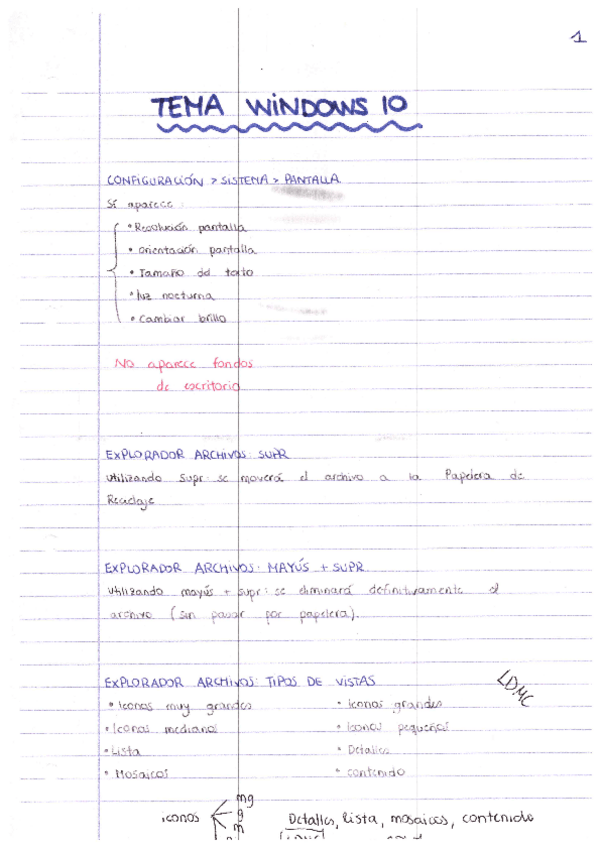 1
TEMA WINDOWS 10
CONFIGURACIÓN > SISTEMA > PANTALLA
Sí aparece:
• Resolución pantalla
• orientación pantalla
• Tamaño del texto
• luz nocturna
• Cambiar brillo
No aparece fondos
de escritorio
EXPLORADOR ARCHIVOS: SUPR
Utilizando Supr se moverá el archivo a la Papelera de
Reciclaje
EXPLORADOR ARCHIVOS: MAYÚS + SUPR
Utilizando mayús + supr: se eliminará definitivamente el
archivo (sin pasar por papelera).
EXPLORADOR ARCHIVOS: TIPOS DE VISTAS
LDMC
• Iconos muy grandes • Iconos grandes
• Iconos medianos • Iconos pequeños
• Lista • Detalles
• Mosaicos • contenido
mg
iconos g Detalles, lista, mosaicos, contenido
m